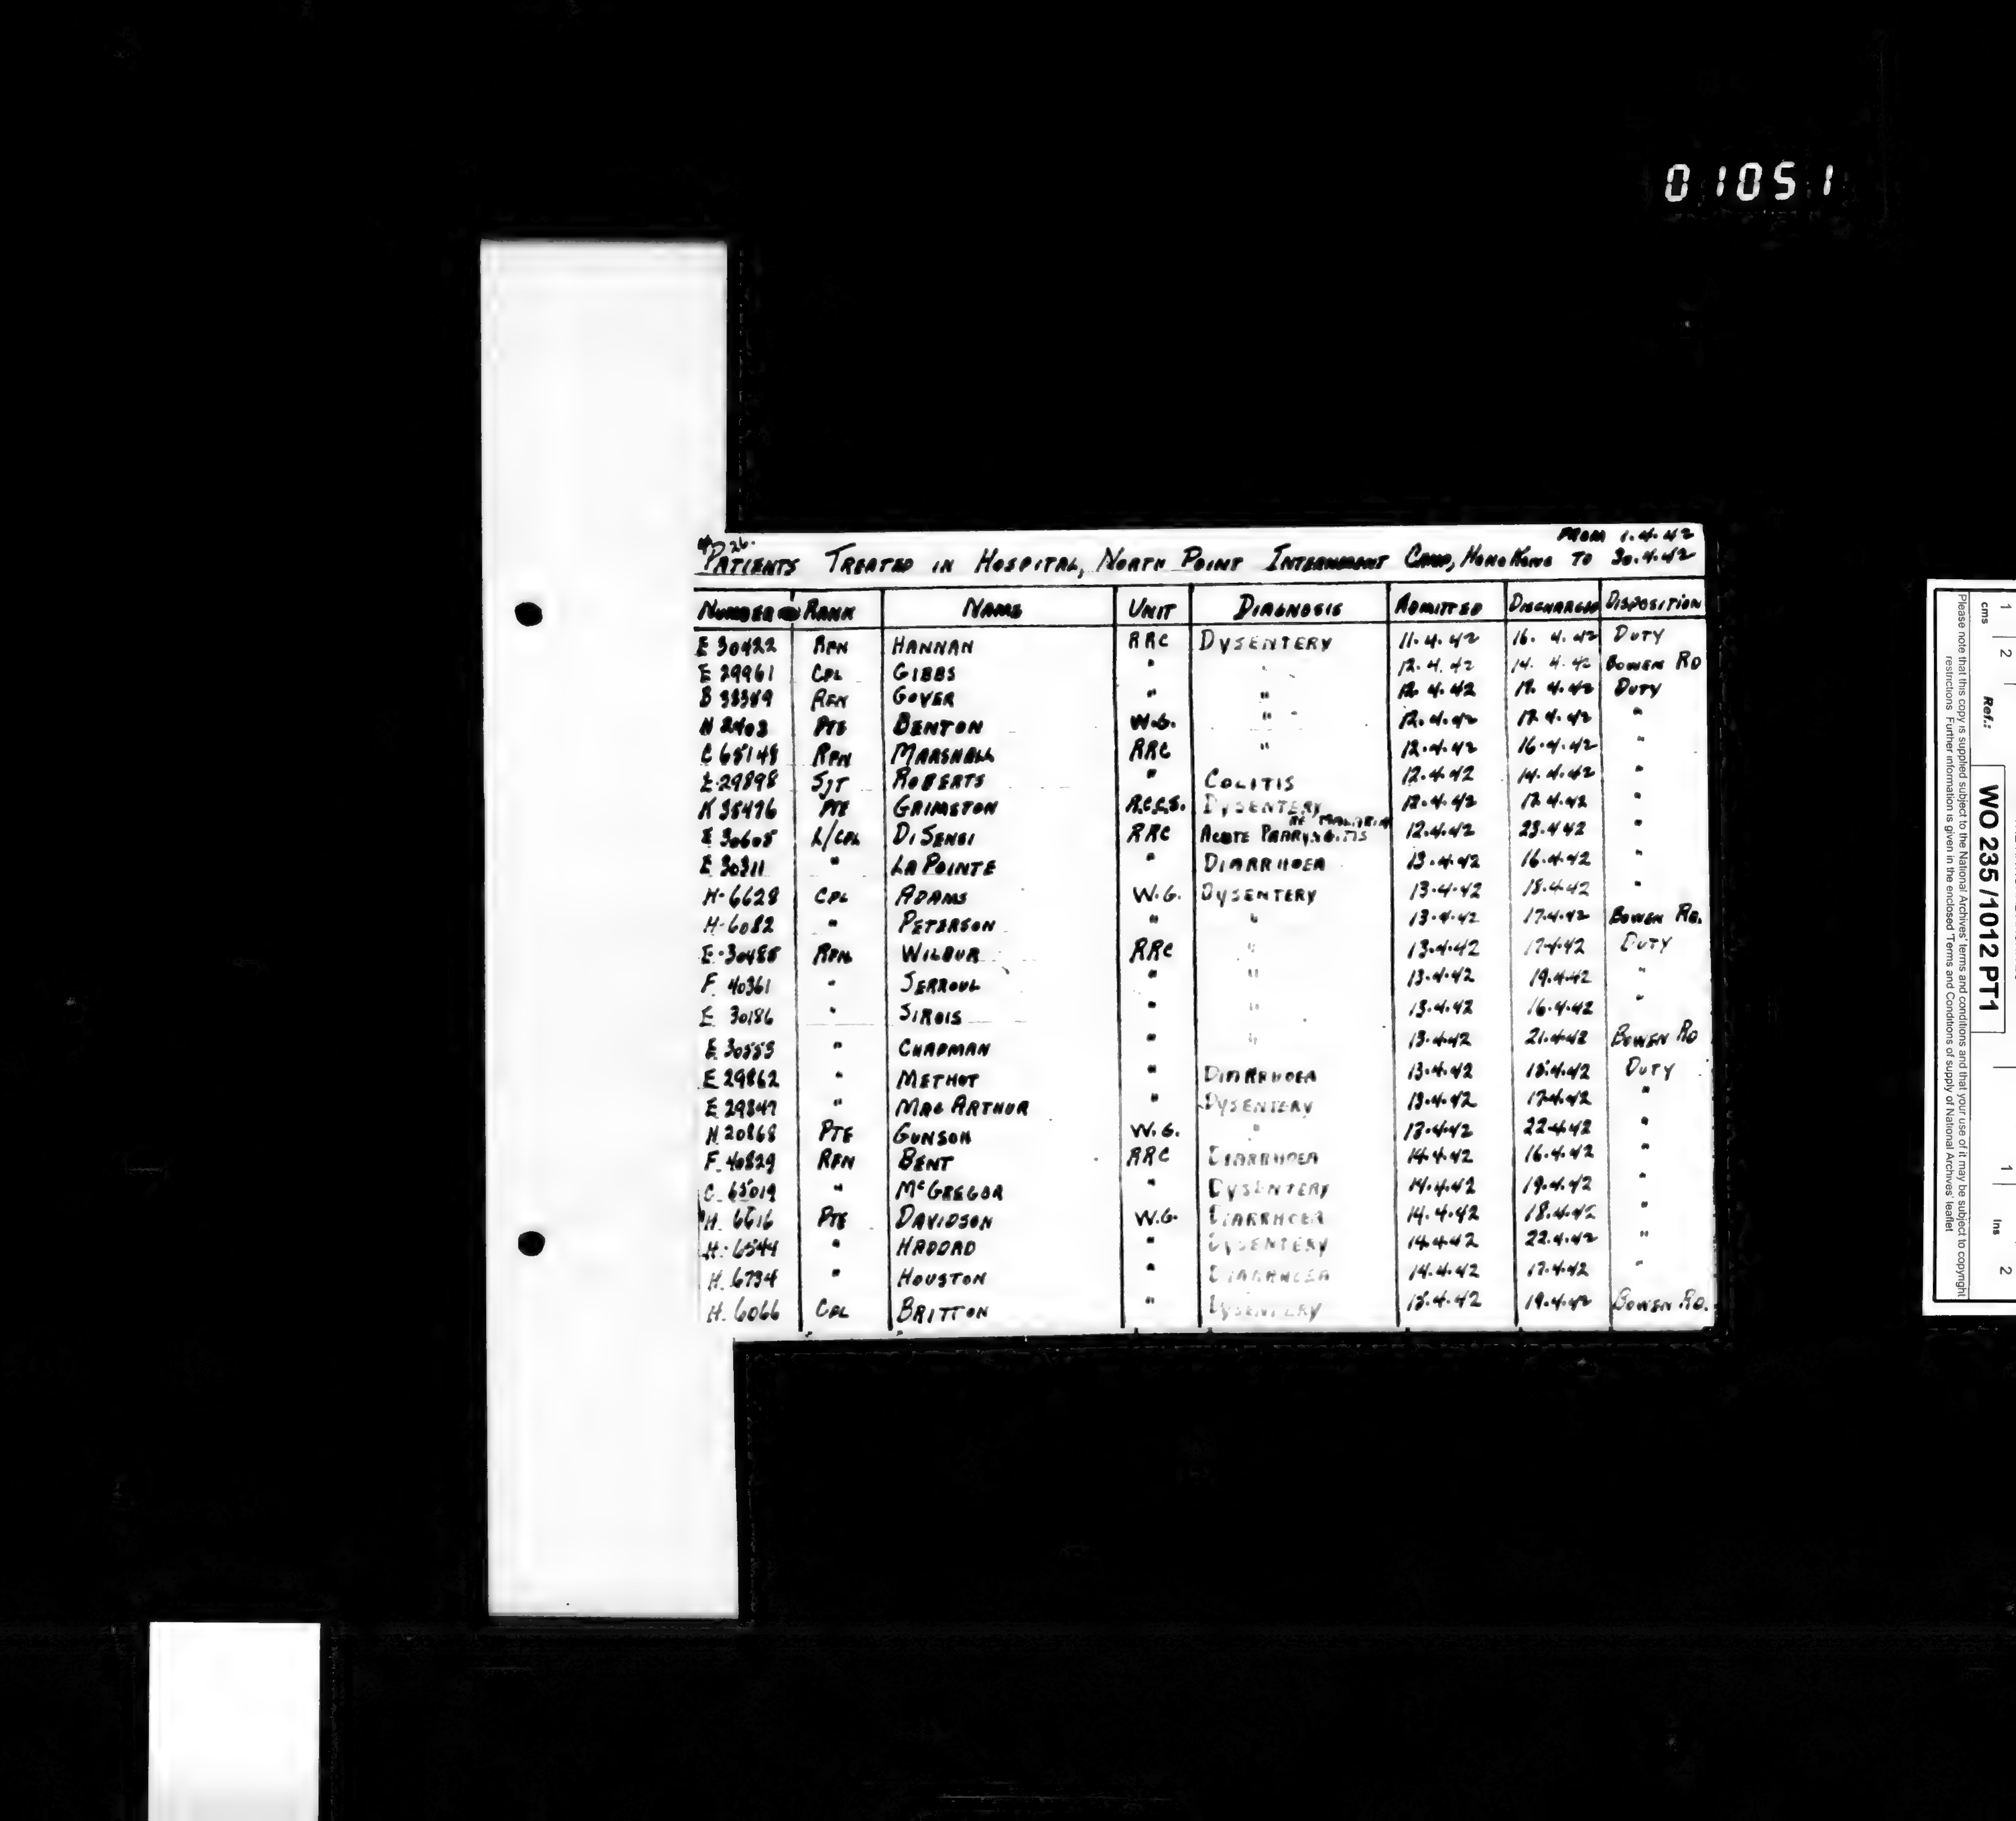 01051
26.
FROM 1.4.42
PATIENTS TREATED IN HOSPITAL, NORTH POINT INTERNMENT CAMP, HONG KONG TO 30.4.42
NUMBER RANK NAME UNIT DIAGNOSIS ADMITTED DISCHARGED DISPOSITION
E 30422 RFN HANNAN RRC DYSENTERY 11.4.42 16.4.42 DUTY
E 29961 CPL GIBBS " " 12.4.42 14.4.42 BOWEN RD
RFN GOVER " " 12.4.42 17.4.42 DUTY
PTE BENTON W.G. " 12.4.42 17.4.42 "
C 65148 RFN MARSHALL RRC " 12.4.42 16.4.42 "
E.29898 SJT ROBERTS " COLITIS 12.4.42 14.4.42 "
K 35476 PTE GRIMSTON R.C.C.S. DYSENTERY 12.4.42 17.4.42 "
RE MALARIA
E 30605 L/CPL DISENSI RRC ACUTE PHARYNGITIS 12.4.42 23.4.42 "
E 30311 " LA POINTE " DIARRHOEA 13.4.42 16.4.42 "
H-6628 CPL ADAMS W.G. DYSENTERY 13.4.42 18.4.42 "
H-6082 " PETERSON " " 13.4.42 17.4.42 BOWEN RD.
E-30485 RFN WILBUR RRC " 13.4.42 17.4.42 DUTY
F. 40361 " SERROUL " " 13.4.42 19.4.42 "
E 30186 " SIROIS " " 13.4.42 16.4.42 "
E 30553 " CHAPMAN " " 13.4.42 21.4.42 BOWEN RD
E 29862 " METHOT " DIARRHOEA 13.4.42 18.4.42 DUTY
E 29847 " MACARTHUR " DYSENTERY 13.4.42 17.4.42 "
H 20868 PTE GUNSON W.G. " 13.4.42 22.4.42 "
F. 40829 RFN BENT RRC DIARRHOEA 14.4.42 16.4.42 "
C. 65019 " McGREGOR " DYSENTERY 14.4.42 19.4.42 "
H. 6616 PTE DAVIDSON W.G. DIARRHOEA 14.4.42 18.4.42 "
H. 6544 " HADDAD " DYSENTERY 14.4.42 22.4.42 "
H. 6734 " HOUSTON " DIARRHOEA 14.4.42 17.4.42 "
H. 6066 CPL BRITTON " DYSENTERY 15.4.42 19.4.42 BOWEN RD.
cms 1 2
Ref.:
WO 235/1012 PT1
Ins 1 2
Please note that this copy is supplied subject to the National Archives' terms and conditions and that your use of it may be subject to copyright
restrictions. Further information is given in the enclosed 'Terms and Conditions of supply of National Archives' leaflet